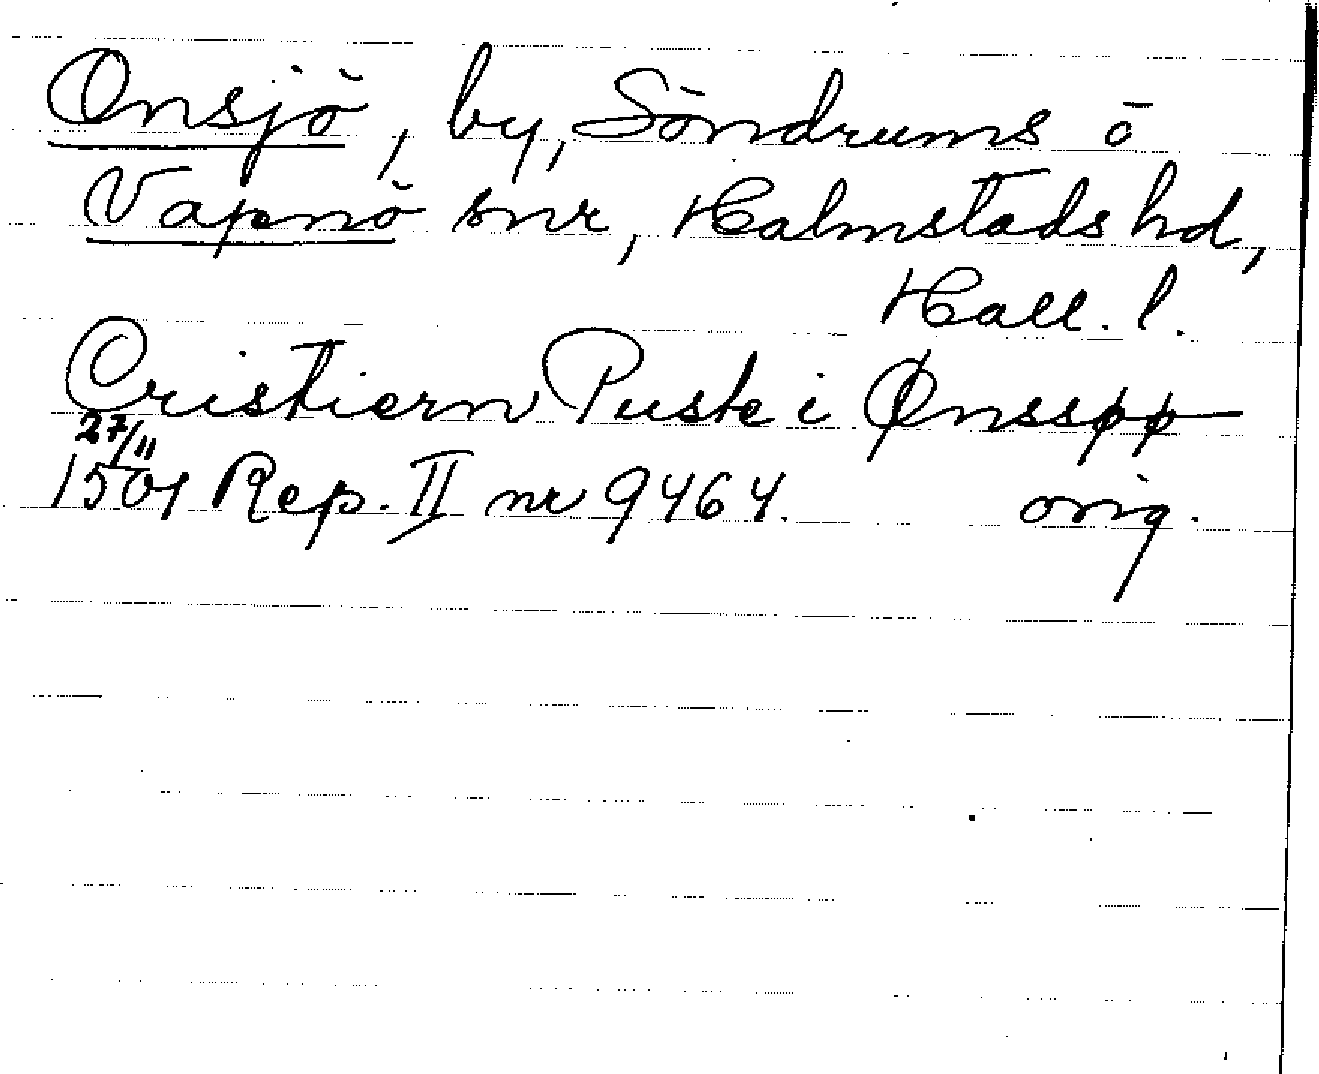 Onsjö, by, Söndrums o
Vapnö snr, Halmstads hd,
Hall. l.
Cristiern Puste i Ønsspp
27/11
1501 Rep. II nr 9464. orig.